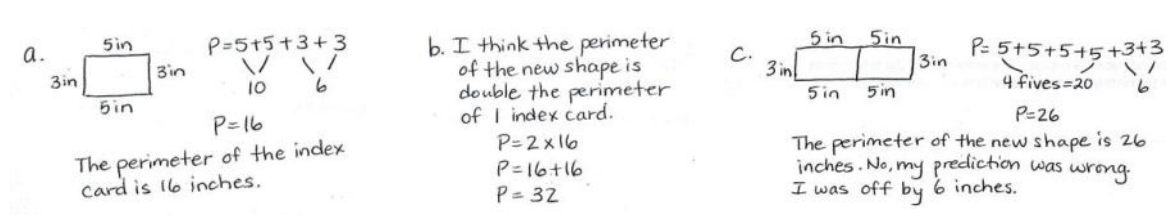 a.
5in
3in
3in
5in
P=5+5+3+3
10 6
P=16
The perimeter of the index
card is 16 inches.
b. I think the perimeter
of the new shape is
double the perimeter
of 1 index card.
P=2x16
P=16+16
P=32
c.
5in 5in
3in
3in
5in 5in
P= 5+5+5+5+3+3
4 fives=20 6
P=26
The perimeter of the new shape is 26
inches. No, my prediction was wrong.
I was off by 6 inches.